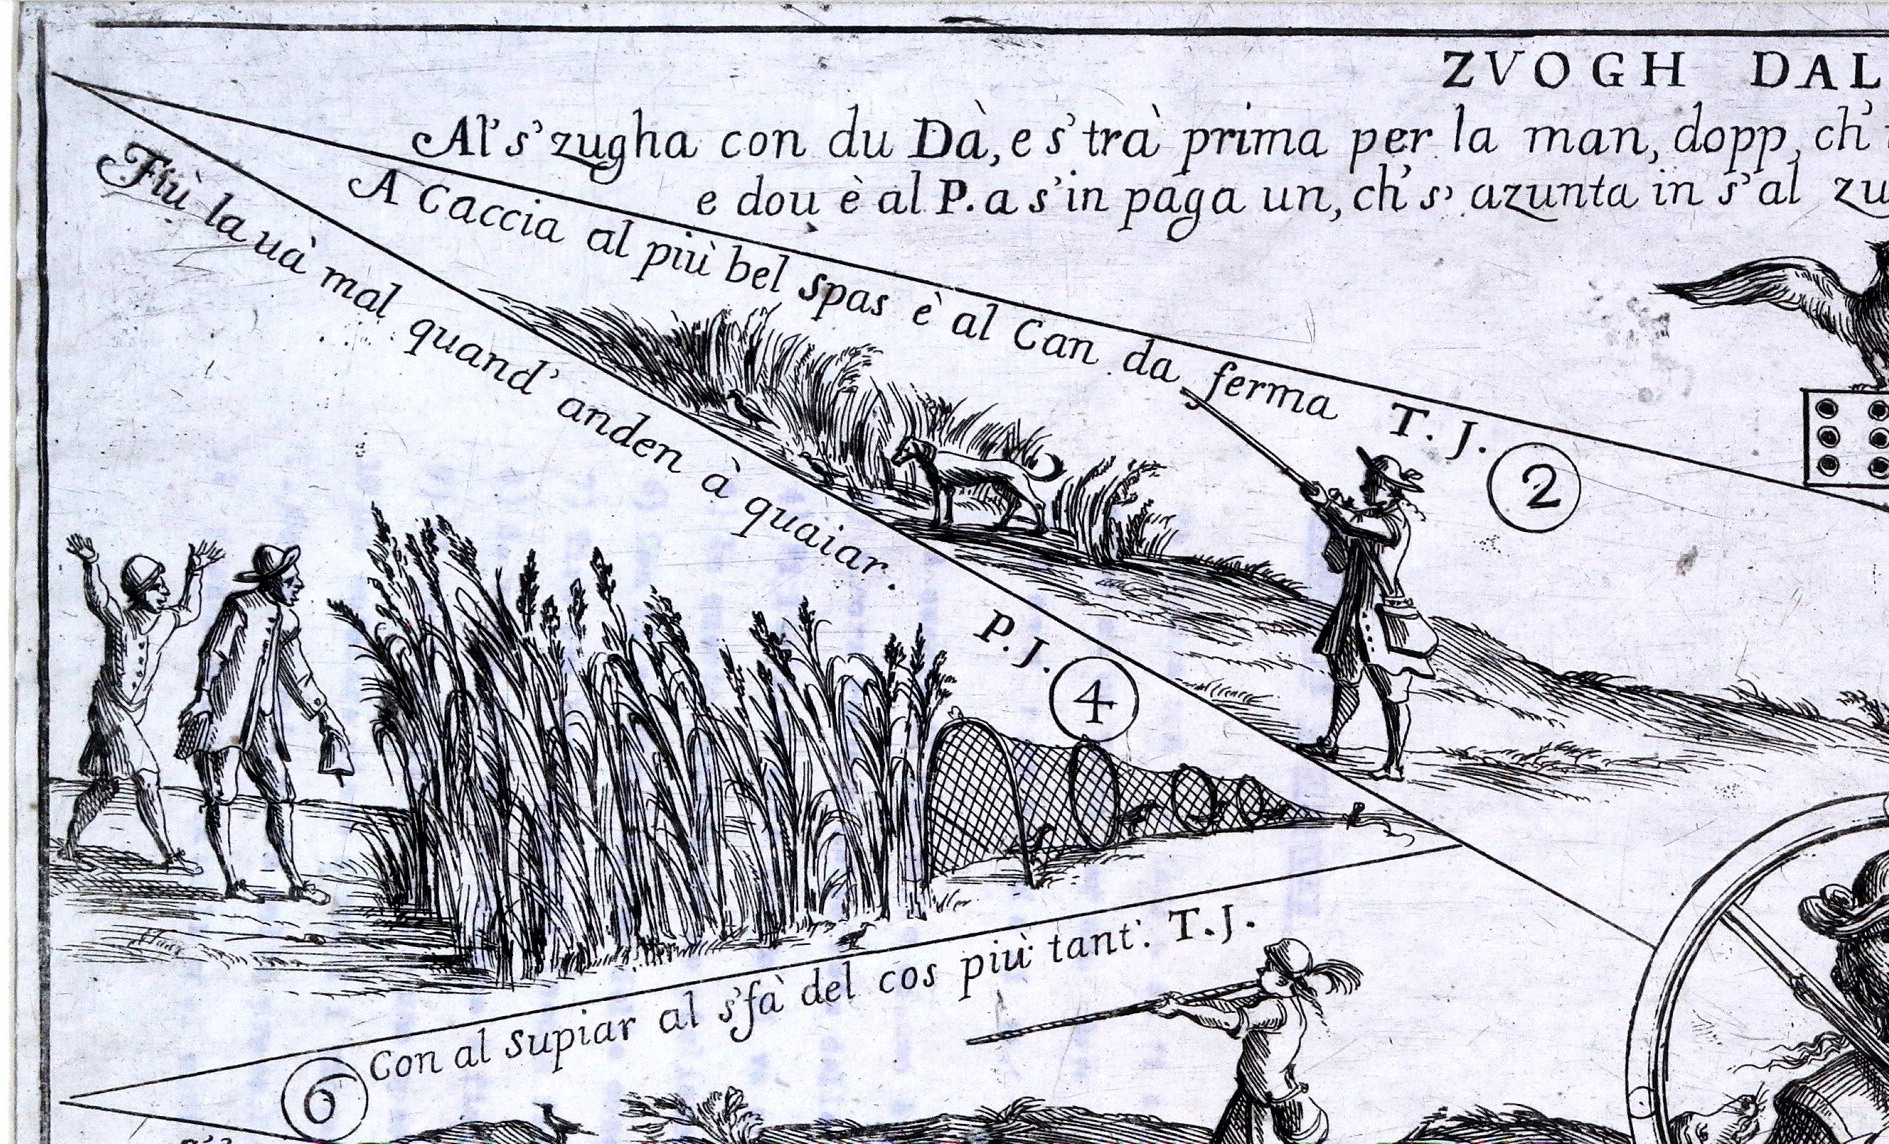 ZVOGH DAL
Al' s' zugha con du Dà, e s' trà prima per la man, dopp, ch'
e dou è al P. a s' in paga un, ch' s' azunta in s' al zu
A Caccia al più bel spas è al Can da ferma T. J. 2
Fiù la uà mal quand' anden à quaiar.
P. J. 4
Con al supiar al s' fà del cos più tant'. T. J.
6